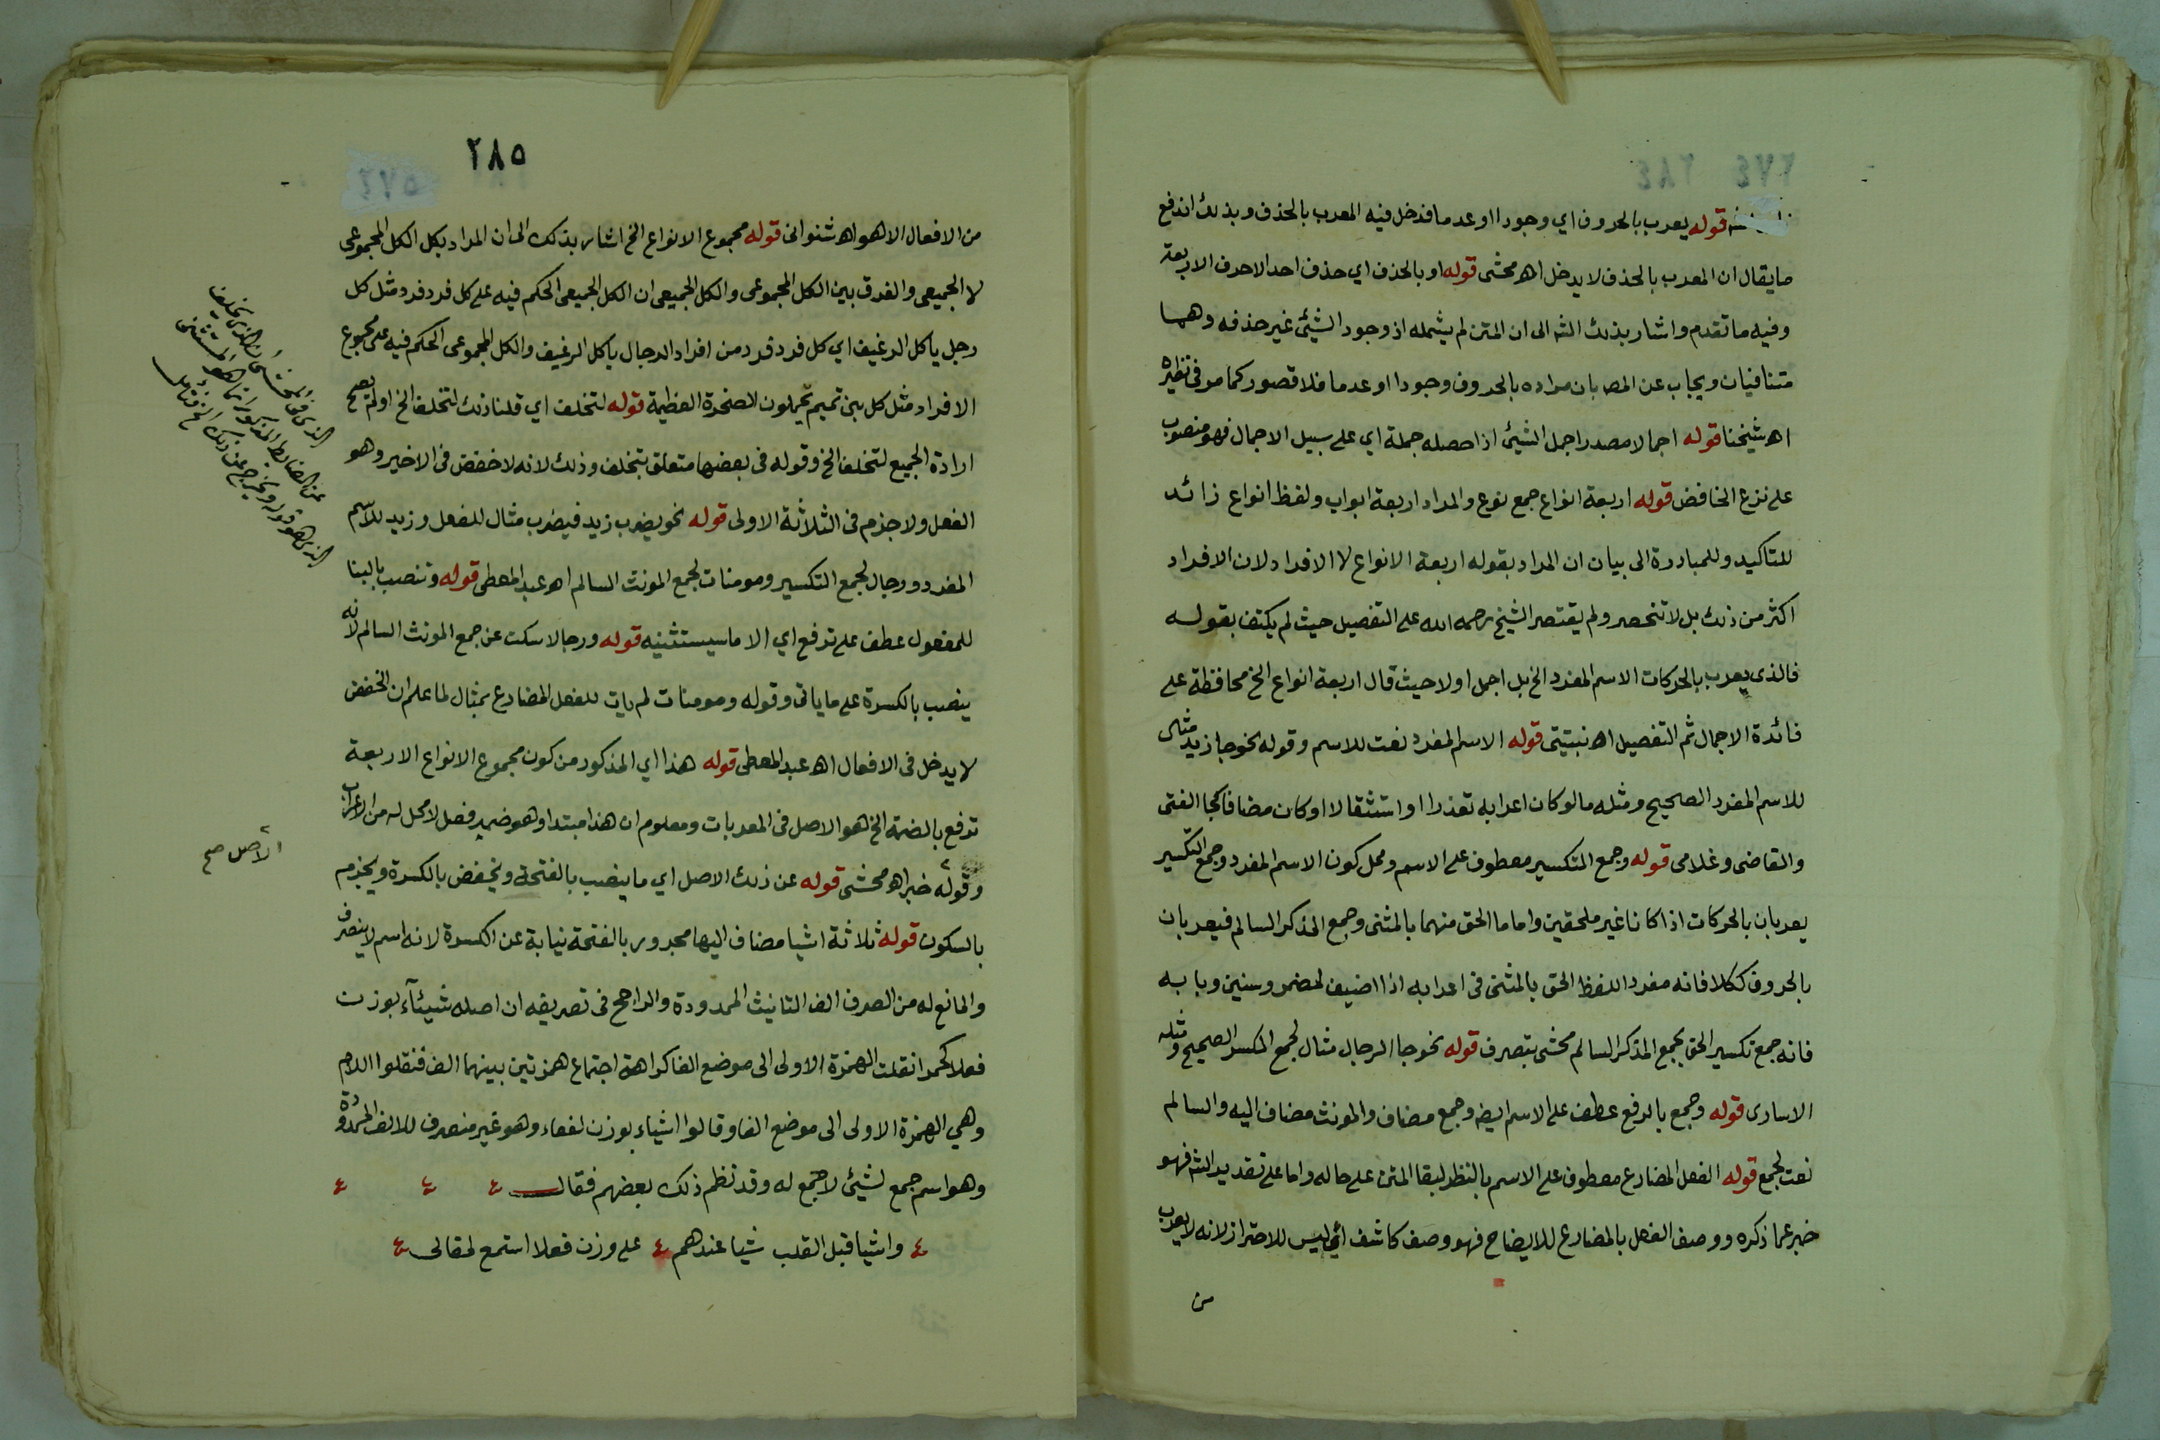 ٢٧٤ ٢٨٤
قوله يعرب بالحروف اي وجودا او عدما فدخل فيه المعرب بالحذف وبذلك اندفع
ما يقال ان المعرب بالحذف لا يدخل اهـ محشى قوله او بالحذف اي حذف احد الاحرف الاربعة
وفيه ما تقدم واشار بذلك الشه الى ان المتن لم يشمله اذ وجود الشيئ غير حذفه وهما
متنافيان ويجاب عن المصه بان مراده بالحروف وجودا او عدما فلا قصور كما مر في نظيره
اهـ شيخنا قوله اجمالا مصدر اجمل الشيئ اذا حصله جملة اي على سبيل الاجمال فهو منصوب
على نزع الخافض قوله اربعة انواع جمع نوع والمراد اربعة ابواب ولفظ انواع زائد
للتاكيد وللمبادرة الى بيان ان المراد بقوله اربعة الانواع لا الافراد لان الافراد
اكثر من ذلك بل لا تنحصر ولم يقتصر الشيخ رحمه الله على التفصيل حيث لم يكتف بقوله
فالذي يعرب بالحركات الاسم المفرد الخ بل اجمل اولا حيث قال اربعة انواع الخ محافظة على
فائدة الاجمال ثم التفصيل اهـ نبتيتى قوله الاسم المفرد نعت للاسم وقوله نحو جا زيد مثال
للاسم المفرد الصحيح ومثله ما لو كان اعرابه تعذرا او استثقالا او كان مضافا كجا الفتى
والقاضى وغلامى قوله وجمع التكسير معطوف على الاسم ومحل كون الاسم المفرد وجمع التكسير
يعربان بالحركات اذا كانا غير ملحقين واما ما الحق منهما بالمثنى وجمع المذكر السالم فيعربان
بالحروف ككلا فانه مفرد اللفظ الحق بالمثنى في اعرابه اذا اضيف لمضمر وسنين وبابه
فانه جمع تكسير الحق بجمع المذكر السالم محشى بتصرف قوله نحو جا الرجال مثال لجمع المكسر الصحيح ومثله
الاسارى قوله وجمع بالرفع عطف على الاسم ايضه وجمع مضاف والمونث مضاف اليه والسالم
نعت لجمع قوله الفعل المضارع معطوف على الاسم بالنظر لبقا المتن على حاله واما على تقدير الشه فهو
خبر عما ذكره ووصف الفعل بالمضارع للايضاح فهو وصف كاشف اي ليس للاحتراز لانه لا يعرب
من
٢٨٥
من الافعال الا هو اهـ شنوانى قوله مجموع الانواع الخ اشار بذلك الى ان المراد بكل الكل المجموعى
لا الجميعى والفرق بين الكل المجموعى والكل الجميعى ان الكل الجميعى الحكم فيه على كل فرد فرد مثل كل
رجل ياكل الرغيف اي كل فرد فرد من افراد الرجال ياكل الرغيف والكل المجموعى الحكم فيه على مجموع
الافراد مثل كل بنى تميم يحملون الصخرة العظيمة قوله لتخلف اي قلنا ذلك لتخلف الخ او لم تصح
ارادة الجميع لتخلف الخ وقوله فى بعضها متعلق بتخلف وذلك لانه لا خفض فى الاخير وهو
الفعل ولا جزم فى الثلاثة الاولى قوله نحو يضرب زيد فيضرب مثال للفعل وزيد للاسم
المفرد ورجال لجمع التكسير ومومنات لجمع المونث السالم اهـ عبد المعطى قوله وتنصب بالبنا
للمفعول عطف على ترفع اي الا ما سيستثنيه قوله ورجالا سكت عن جمع المونث السالم لانه
ينصب بالكسرة على ما ياتى وقوله ومومنات لم يات للفعل المضارع بمثال لما علم ان الخفض
لا يدخل فى الافعال اهـ عبد المعطى قوله هذا اي المذكور من كون مجموع الانواع الاربعة
ترفع بالضمة الخ هو الاصل فى المعربات ومعلوم ان هذا مبتدا وهو ضمير فصل لا محل له من الاعراب
وقوله خبر اهـ محشى قوله عن ذلك الاصل اي ما ينصب بالفتحة ويخفض بالكسرة ويجزم
بالسكون قوله ثلاثة اشيا مضاف اليها مجرور بالفتحة نيابة عن الكسرة لانه اسم لا ينصرف
والمانع له من الصرف الف التانيث الممدودة والراجح فى تصريفه ان اصله شيئآء بوزن
فعلا كحمرا نقلت الهمزة الاولى الى موضع الفا كراهة اجتماع همزتين بينهما الف فنقلوا اللام
وهي الهمزة الاولى الى موضع الفا وقالوا اشياء بوزن لفعاء وهو غير منصرف للالف الممدودة
وهو اسم جمع لشيئ لا جمع له وقد نظم ذلك بعضهم فقال
واشيا قبل القلب شيا عندهم على وزن فعلا استمع لمقالى
الاصل صح